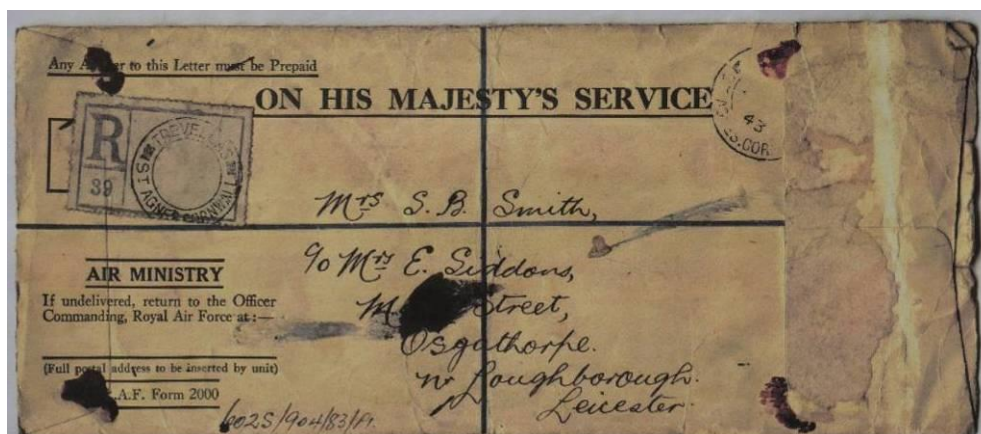 Any to this Letter must be Prepaid
ON HIS MAJESTY'S SERVICE
R
39
TREVELLAS
ST AGNES CORNWALL
43
S.COR
Mrs S. B. Smith,
c/o Mrs E. Siddons,
Street,
Osgathorpe.
Nr Loughborough.
Leicester.
AIR MINISTRY
If undelivered, return to the Officer
Commanding, Royal Air Force at :—
(Full postal address to be inserted by unit)
A.F. Form 2000